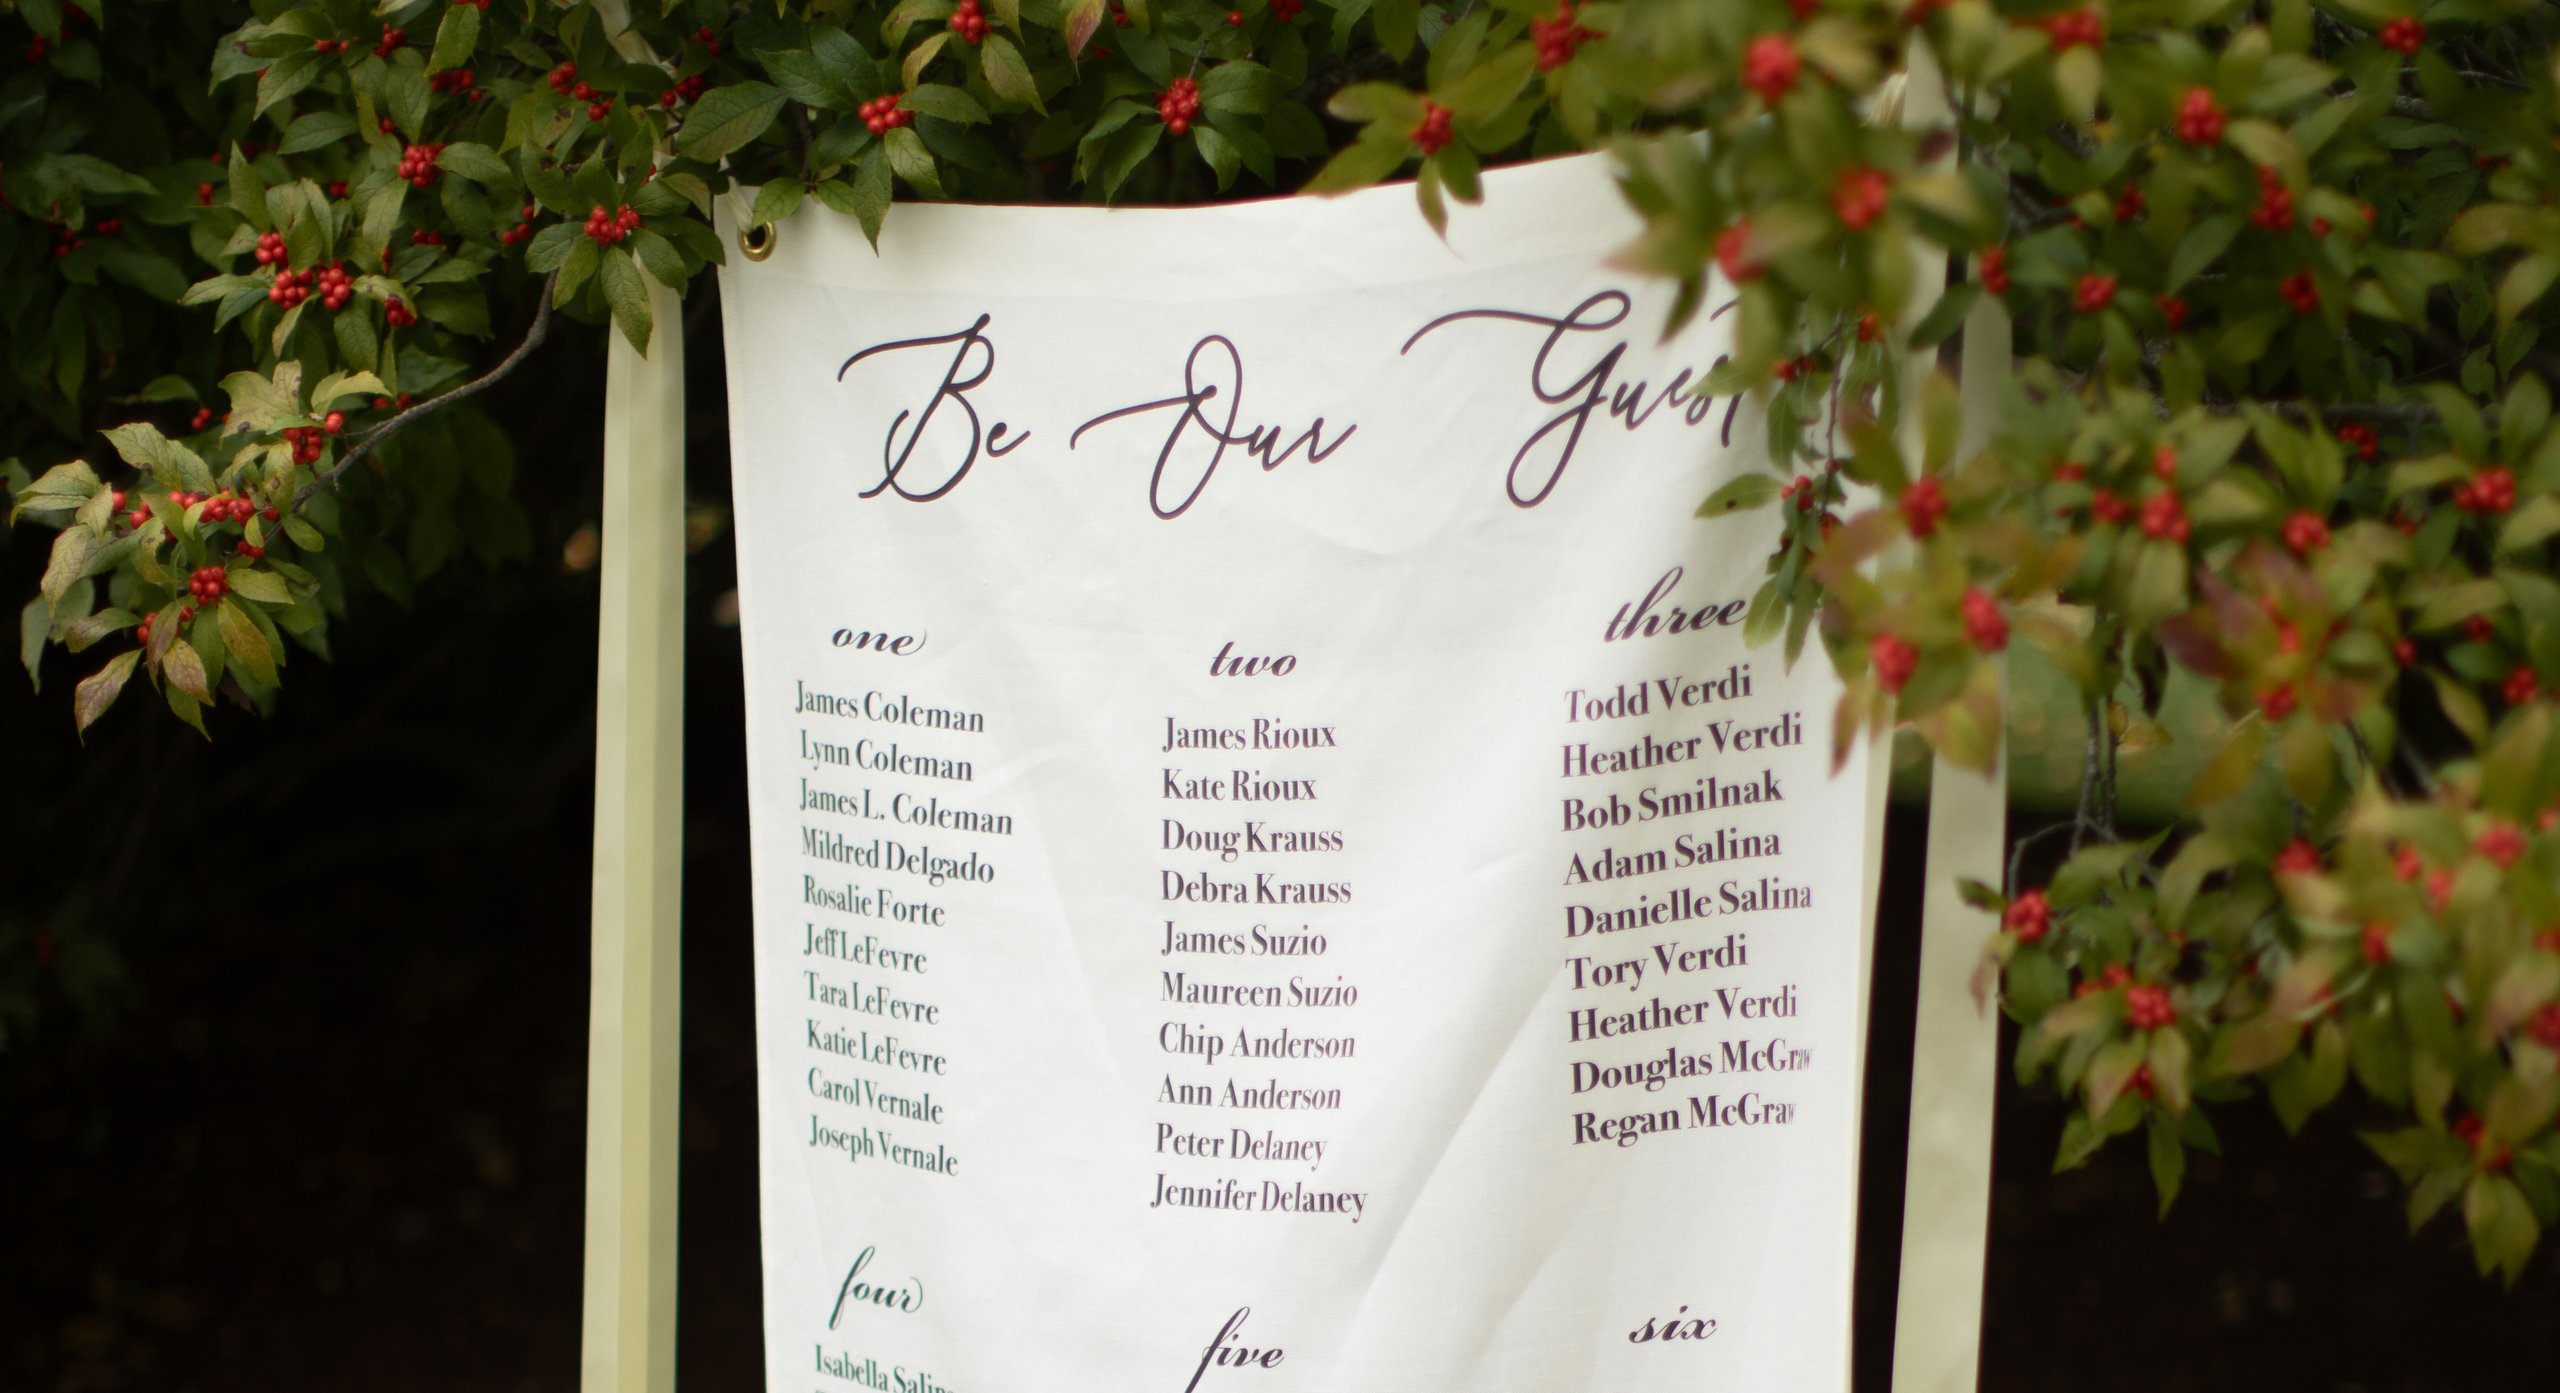 Be Our Guest
one
James Coleman
Lynn Coleman
James L. Coleman
Mildred Delgado
Rosalie Forte
Jeff LeFevre
Tara LeFevre
Katie LeFevre
Carol Vernale
Joseph Vernale
two
James Rioux
Kate Rioux
Doug Krauss
Debra Krauss
James Suzio
Maureen Suzio
Chip Anderson
Ann Anderson
Peter Delaney
Jennifer Delaney
three
Todd Verdi
Heather Verdi
Bob Smilnak
Adam Salina
Danielle Salina
Tory Verdi
Heather Verdi
Douglas McGraw
Regan McGraw
four
Isabella Salina
five
six